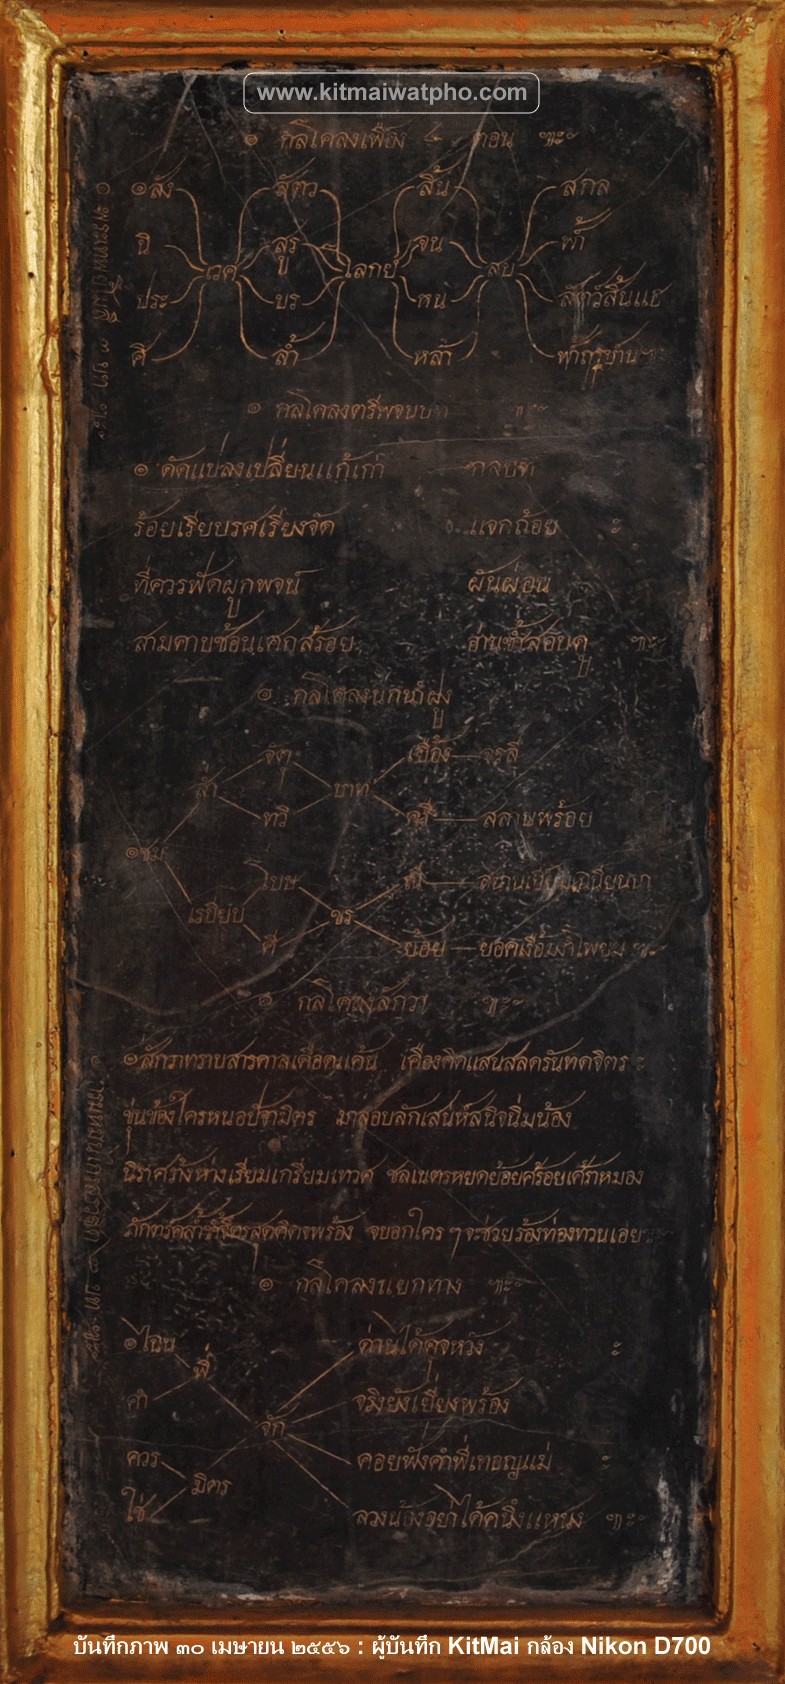 www.kitmaiwatpho.com
๏ กลโคลงเฟือง ตอน ฯะ
๏ สัง สัตว สิ้น สกล
นิ สูร จน ฟ้า
เวค โลกย์ สบ
ประ บร หน สัตว์สิ้นแธ
ศิ ล้ำ หล้า
๏ กลโคลงตรีพจนบท
๏ คัดแปลงเปลี่ยนแก้เก่า กลบท
ร้อยเรียบรศเรียงจัด แจกถ้อย ะ
ที่ควรฟัดผูกพจน์ ผันผ่อน
สามคาบซ้อนเคกสร้อย อ่านซ้ำสอบดู ฯะ
๏ กลโคลงนกนำฝูง
จัตุ เยื้อง จรลี
ลำ บาท
ทวี ศรี สลาบพร้อย
๏ ชม
โบษ
เรบียบ ขร
ศี ย้อย
๏ กลโคลงสักวา ฯะ
๏ สักวาทราบสารกาลเดือดแค้น เคืองคิดแสนสลดรันทดจิตร ะ
ขุ่นข้องใครหนอปัจามิตร มาลอบลักเสน่ห์สนิจนิ่มน้อง
นิราศร้างห่างเรียมเกรียมเทวศ ชลเนตรหยดย้อยสร้อยเศร้าหมอง
จบอกใครๆจะช่วยร้องท่องทวนเอย
๏ กลโคลงแยกทาง ฯะ
๏ ไฉน พี่ ด่านได้ดุจหวัง ะ
คำ จัก จริงยังเยี่ยงพร้อง
ควร มิตร คอยฟังคำพี่เทอญแม่ ะ
ใช่ ลวงน้องอย่าได้คนึงแหนง ฯะ
บันทึกภาพ ๓๐ เมษายน ๒๕๕๖ : ผู้บันทึก KitMai กล้อง Nikon D700